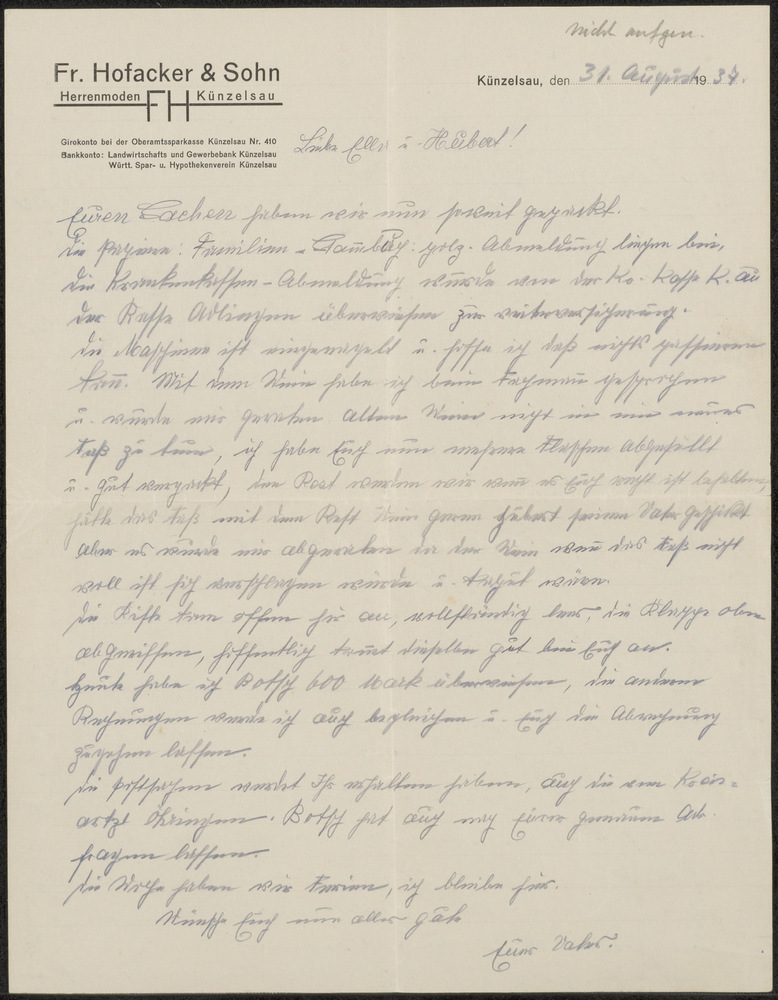 Nicht aufgen.
Fr. Hofacker & Sohn
Herrenmoden FH Künzelsau
Künzelsau, den 31. August 1937.
Girokonto bei der Oberamtssparkasse Künzelsau Nr. 410
Bankkonto: Landwirtschafts und Gewerbebank Künzelsau
Württ. Spar- u. Hypothekenverein Künzelsau
Liebe Ella u. Hubert!
Euren Sachen haben wir nun soweit gepackt.
Die Papiere: Familien-Stammbuch: polz. Abmeldung liegen bei,
die Krankenkassen-Abmeldung wurde von der Ko. Kasse K. an
der Kasse Adlingen überwiesen zur weiterversicherung.
die Maschine ist eingenagelt u. hoffe ich daß nichts passieren
kann. Mit dem Wein habe ich beim Fachmann gesprochen
u. wurde mir geraten alten Wein nicht in ein neues
Faß zu tun, ich habe Euch nun mehrere Flaschen abgefüllt
u. gut verpackt, den Rest werden wir wenn es Euch recht ist behalten,
hätte das Faß mit dem Rest Wein gerne Hubert seinem Vater geschickt
aber es wurde mir abgeraten da der Wein wenn das Faß nicht
voll ist sich verschlagen würde u. kaput wäre.
Die Kiste kam offen hir an, vollständig leer, die Klappe oben
abgerissen, hoffentlich kommt dieselbe gut bei Euch an.
heute habe ich Botsch 600 Mark überwiesen, die anderen
Rechnungen werde ich auch begleichen u. Euch die Abrechnung
zugehen lassen.
Die Postsachen werdet Ihr erhalten haben, auch die vom Kreis=
arzt Öhringen. Botsch hat auch nach Eurer genauen Ad.
fragen lassen.
Die Woche haben wir Ferien, ich bleibe hir.
Wünsche Euch nun alles gute
Euer Vater.